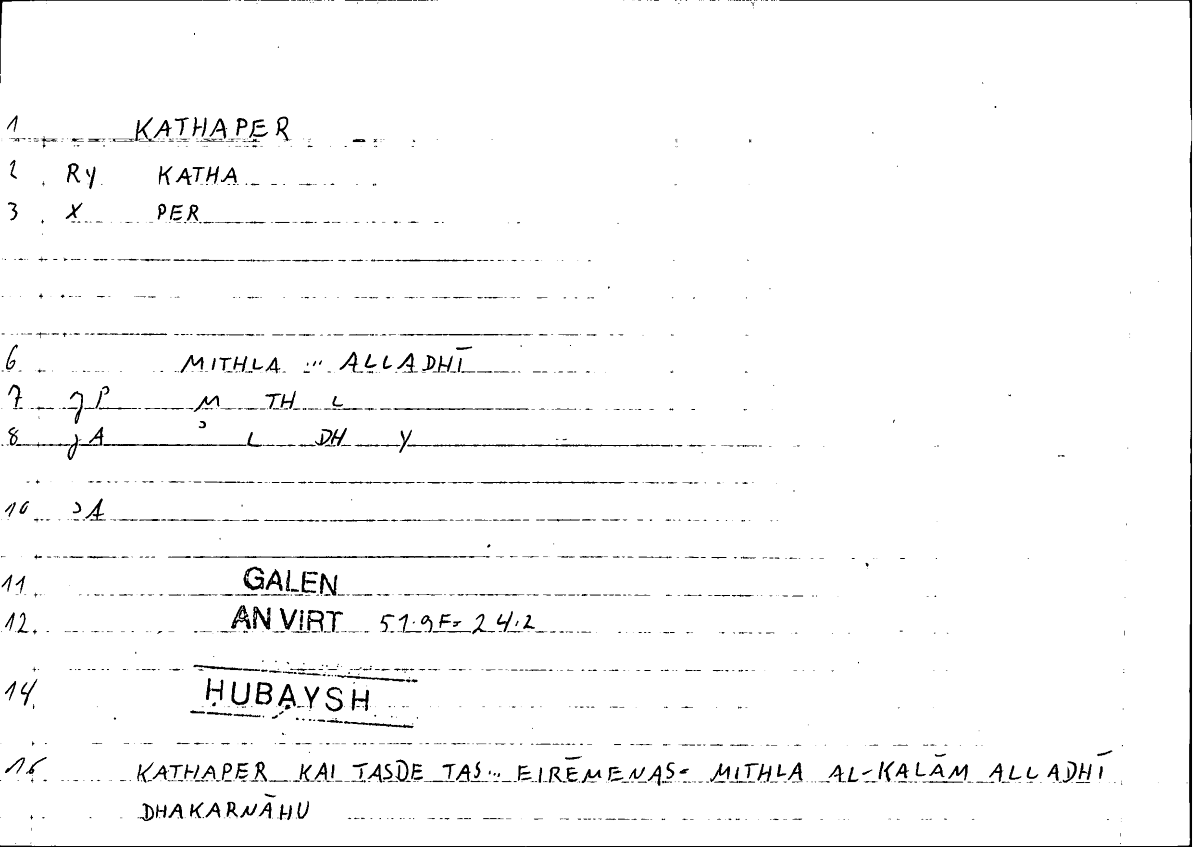 1 KATHAPER
2 RY KATHA
3 X PER
6 MITHLA ... ALLADHĪ
7 JP M TH L
8 JA ʾ L DH Y
10 ʾA
11 GALEN
12. AN VIRT 51.9F= 24.2
14. ḤUBAYSH
15 KATHAPER KAI TASDE TAS... EIRĒMENAS= MITHLA AL-KALĀM ALLADHĪ
DHAKARNĀHU